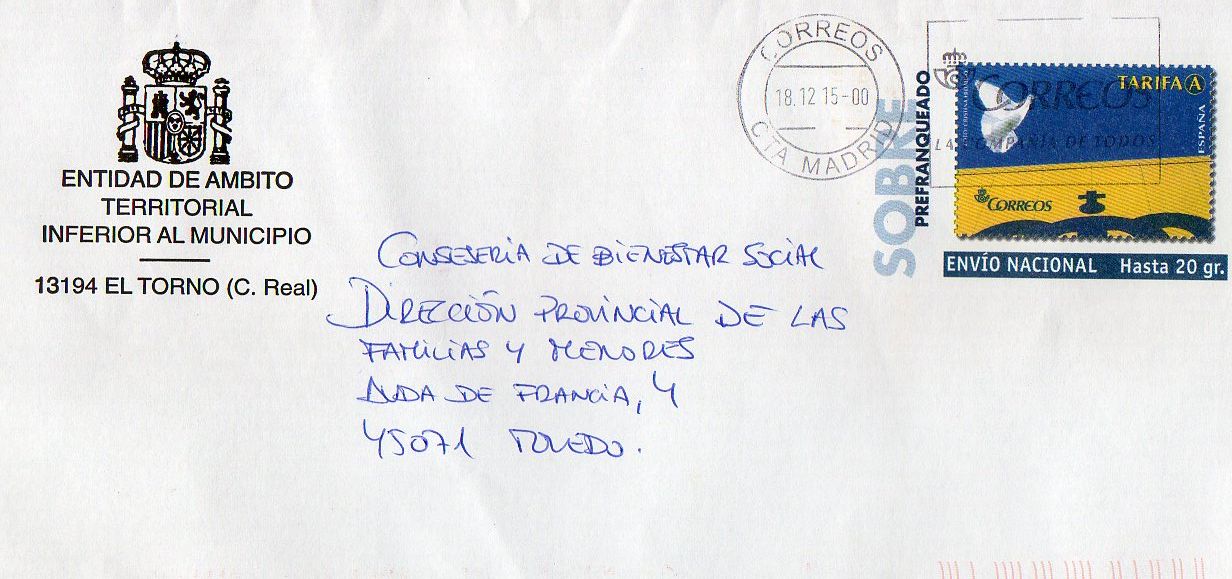 ENTIDAD DE AMBITO
TERRITORIAL
INFERIOR AL MUNICIPIO
13194 EL TORNO (C. Real)
CORREOS
18.12 15-00
CTA MADRID
CORREOS
LA COMPAÑIA DE TODOS
SOBRE
PREFRANQUEADO
TARIFA A
ESPAÑA
CORREOS
ENVÍO NACIONAL Hasta 20 gr.
CONSEJERIA DE BIENESTAR SOCIAL
DIRECCIÓN PROVINCIAL DE LAS
FAMILIAS Y MENORES
AVDA DE FRANCIA, 4
45071 TOLEDO.